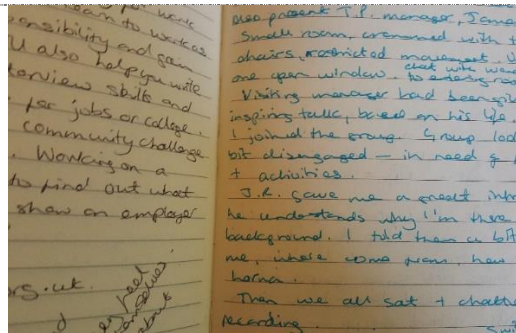 for work
team to work as
nsibility and gain
u also help you write
terview skills and
for jobs or college.
community challenge
. Working on a
to find out what
show an employer
rs.uk.
feel
themselves
about
also present T.P. manager, James
Small room, crammed with t
chairs, restricted movement.
chat with
one open window.
Visiting manager had been giv
inspiring talk, based on his life.
I joined the group. Group loo
bit disengaged — in need of
+ activities.
J.R. gave me a great intr
he understands why I'm there
background. I told them a bit
me, where come from, how
Then we all sat + chatte
recording